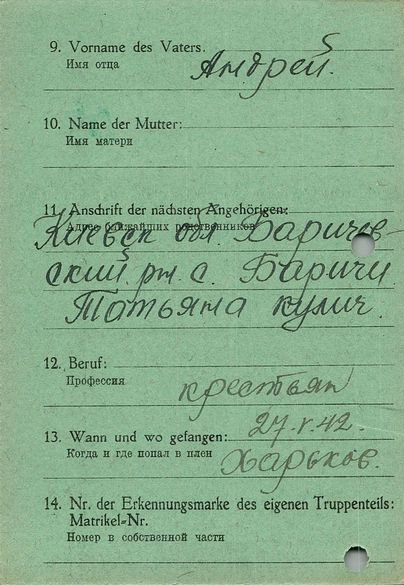 9. Vorname des Vaters.
Имя отца
Андрей.
10. Name der Mutter:
Имя матери
11. Anschrift der nächsten Angehörigen:
Адрес ближайших родственников
Киевск обл. Баричев-
ский рн. с. Баричи
Татьяна кулич.
12. Beruf:
Профессия
крестьян
13. Wann und wo gefangen: 27.V.42.
Когда и где попал в плен
Харьков.
14. Nr. der Erkennungsmarke des eigenen Truppenteils:
Matrikel=Nr.
Номер в собственной части